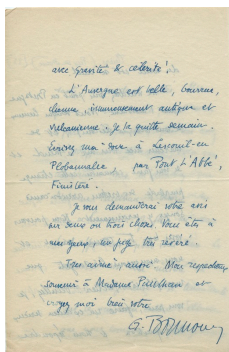 avec gravité & célérité !
L'Auvergne est belle, bourrue,
immensément antique et
volcanienne. Je la quitte demain.
Écrivez moi donc à Lescouil-en
Plobannalec par Pont L'Abbé,
Finistère.
Je vous demanderai votre avis
sur deux ou trois choses. Vous êtes à
mes yeux, un juge très révéré.
Très aimé, aussi. Mon respectueux
souvenir à Madame Paulhan et
croyez moi bien vôtre.
G.